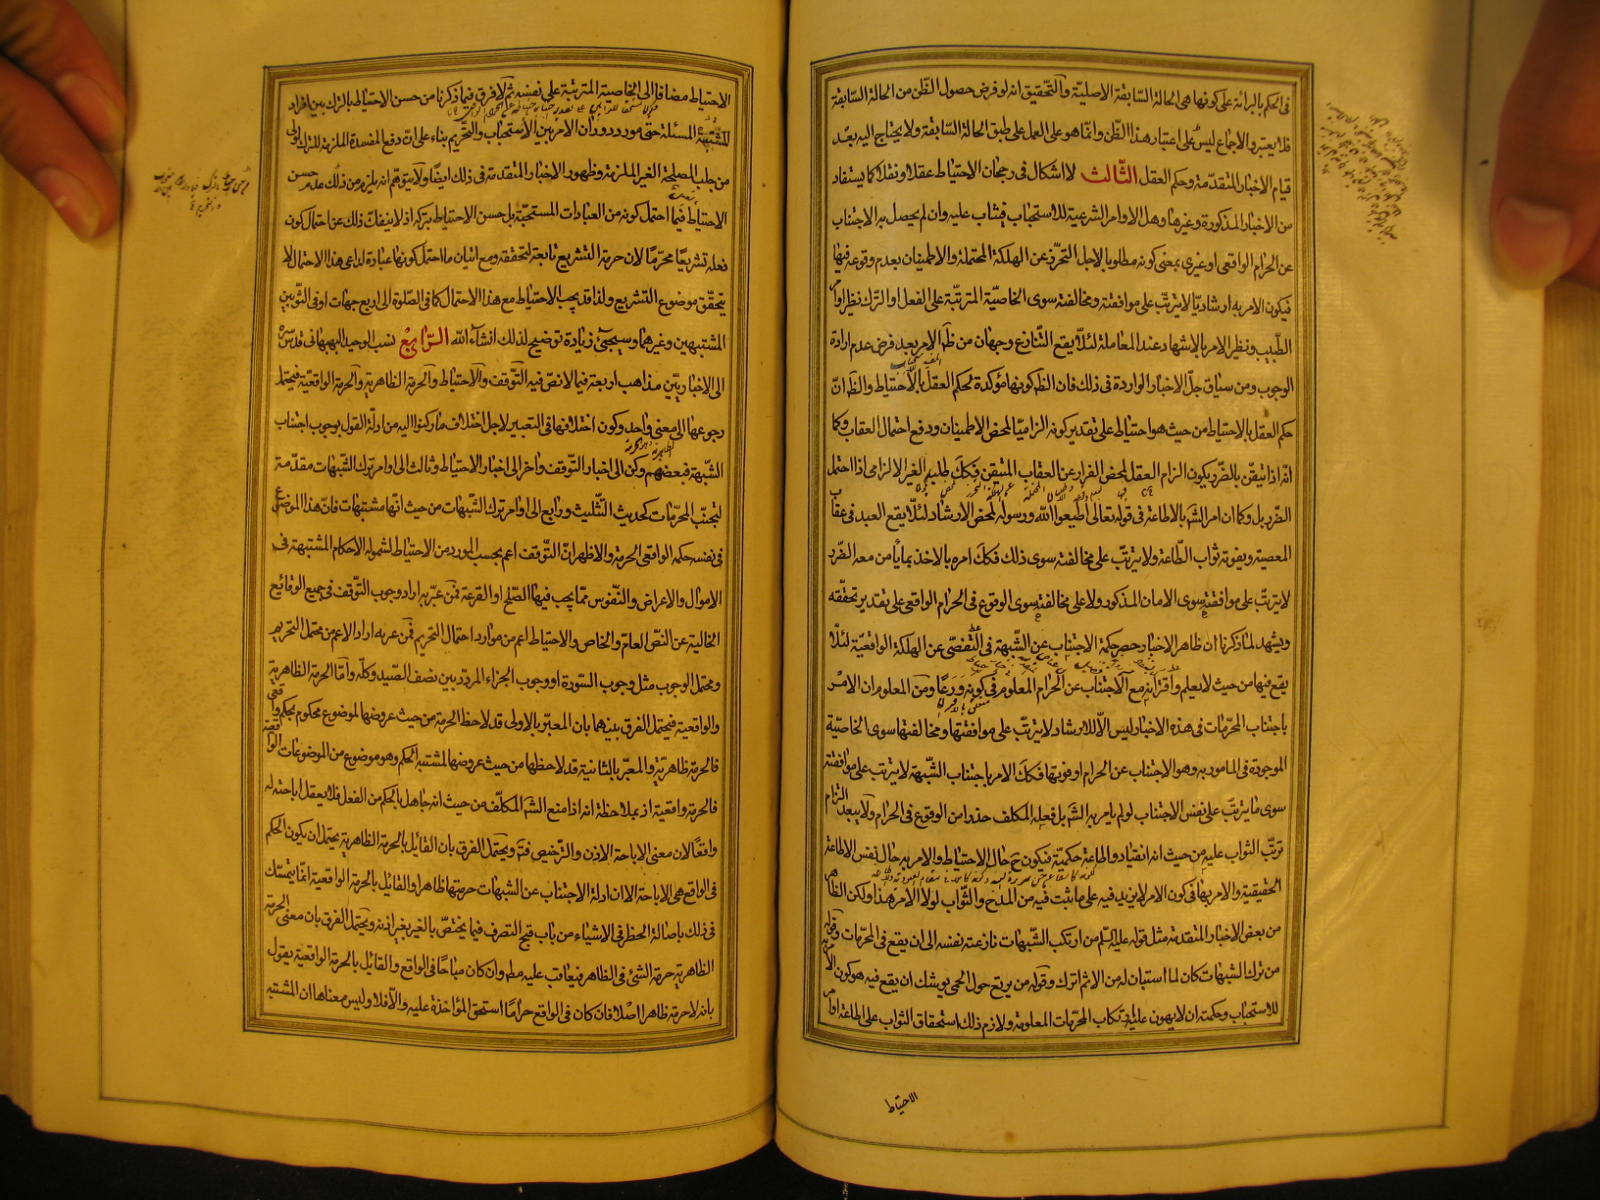 فى الحكم بالبرائة على كونها هى الحالة السابقة الاصليّة والتّحقيق انه لو فرض حصول الظّن من الحالة السّابقة
فلا يعتبر والاجماع ليس على اعتبار هذا الظّن وانّما هو على العمل على طبق الحالة السّابقة ولا يحتاج اليه بعد
قيام الاخبار المتقدّمة وحكم العقل الثّالث لا اشكال فى رجحان الاحتياط عقلا ونقلا كما يستفاد
من الاخبار المذكورة وغيرها وهل الاوامر الشرعية للاستحباب فيثاب عليه وان لم يحصل به الاجتناب
عن الحرام الواقعى او غيرى بمعنى كونه مطلوبا لاجل التحرّز عن الهلكة المحتملة والاطمينان بعدم وقوعه فيها
فيكون الامر به ارشاديّا لا يترتّب على موافقته ومخالفته سوى الخاصيّة المترتّبة على الفعل او الترك نظير اوامر
الطّبيب ونظير الامر بالاشهاد عند المعاملة لئلّا يقع التّنازع وجهان من ظهر الامر بعد فرض عدم ارادة
الوجوب ومن سياق جلّ الاخبار الواردة فى ذلك فان الظ كونها مؤكدة لحكم العقل بالاحتياط والظ انّ
حكم العقل بالاحتياط من حيث هو احتياط على تقدير كونه الزاميّا لمحض الاطمينان ودفع احتمال العقاب وكما
انّه اذا تيقّن بالضّرر يكون الزام العقل لمحض الفرار عن العقاب المتيقن فكك طلبه الغير الالزامى اذا احتمل
الضّرر بل وكما ان امر الشّم بالاطاعة فى قوله تعالى اطيعوا الله ورسوله لمحض الارشاد لئلّا يقع العبد فى عقاب
المعصية ويفوته ثواب الطّاعة ولا يترتّب على مخالفته سوى ذلك فكك امره بالاخذ بما يأمن معه الضّرر
لا يترتّب على موافقته سوى الامان المذكور ولا على مخالفته سوى الوقوع فى الحرام الواقعى على تقدير تحققه
ويشهد لما ذكرنا ان ظاهر الاخبار حصر حكمة الاجتناب عن الشّبهة فى التفصّى عن الهلكة الواقعيّة لئلّا
يقع فيها من حيث لا يعلم واقترانه مع الاجتناب عن الحرام المعلوم فى كونه ورعا ومن المعلوم ان الامر
باجتناب المحرّمات فى هذه الاخبار ليس الّا للارشاد لا يترتّب على موافقتها ومخالفتها سوى الخاصيّة
الموجودة فى المامور به وهو الاجتناب عن الحرام او فوتها فكك الامر باجتناب الشّبهة لا يترتّب على موافقته
سوى ما يترتّب على نفس الاجتناب لو لم يامر به الشّم بل فعله المكلف حذرا من الوقوع فى الحرام ولا يبعد التزام
ترتّب الثواب عليه من حيث انه انقياد واطاعة حكميّة فيكون ح حال الاحتياط والامر به حال نفس الاطاعة
الحقيقية والامر بها فى كون الامر لا يزيد فيه على ما ثبت فيه من المدح والثّواب لولا الامر هذا ولكن الظاهر
من بعض الاخبار المتقدمة مثل قوله عليه السّلم من ارتكب الشّبهات نازعته نفسه الى ان يقع فى المحرّمات وقوله
من ترك الشبهات كان لما استبان له من الاثم اترك وقوله من يرتع حول الحمى يوشك ان يقع فيه هو كون الامر
للاستحباب وحكمته ان لا يهون عليه ارتكاب المحرّمات المعلومة ولازم ذلك استحقاق الثواب على اطاعة اوامر
الاحتياط
الاحتياط مضافا الى الخاصية المترتبة على نفسه ثم لا فرق فيما ذكرنا من حسن الاحتياط بالترك بين افراد
المسئلة حتى مورد دوران الامر بين الاستحباب والتّحريم بناء على انّ دفع المفسدة الملزمة للترك اولى
من جلب المصلحة الغير الملزمة وظهور الاخبار المتقدمة فى ذلك ايضًا ولا يتوهّم انه يلزم من ذلك عدم حسن
الاحتياط فيما احتمل كونه من العبادات المستحبّة بل حسن الاحتياط بتركه اذ لا ينفك ذلك عن احتمال كون
فعله تشريعًا محرّمًا لان حرمة التشريع تابعة لتحققه ومع اتيان ما احتمل كونها عبادة لداعى هذا الاحتمال لا
يتحقّق موضوع التشريع ولذا قد يجب الاحتياط مع هذا الاحتمال كما فى الصّلوة الى اربع جهات او فى الثّوبين
المشتبهين وغيرهما وسيجئ زيادة توضيح لذلك انشاء الله الرّابع نسب الوحيد البهبهانى قدس سره
الى الاخباريّين مذاهب اربعة فيما لا نصّ فيه التّوقف والاحتياط والحرمة الظاهرية والحرمة الواقعيّة فيحتمل
رجوعها الى معنى واحد وكون اختلافها فى التعبير لاجل اختلاف ما ركنوا اليه من ادلّة القول بوجوب اجتناب
الشّبهة فبعضهم ركن الى اخبار التّوقف واخر الى اخبار الاحتياط وثالث الى اوامر ترك الشّبهات مقدّمة
لتجنّب المحرّمات كحديث التّثليث ورابع الى اوامر ترك الشّبهات من حيث انّها مشتبهات فانّ هذا الموضوع
فى نفسه حكمه الواقعى الحرمة والاظهر انّ التّوقف اعم بحسب المورد من الاحتياط لشموله الاحكام المشتبهة فى
الاموال والاعراض والنّفوس ممّا يجب فيها الصّلح او القرعة فمن عبّر به اراد وجوب التّوقف فى جميع الوقائع
الخالية عن النصّ العامّ والخاص والاحتياط اعم من موارد احتمال التحريم فمن عبر به اراد الاعم من محتمل التحريم
ومحتمل الوجوب مثل وجوب السّورة او وجوب الجزاء المردّد بين نصف الصّيد وكلّه وامّا الحرمة الظاهرية
والواقعية فيحتمل الفرق بينهما بان المعبّر بالاولى قد لاحظ الحرمة من حيث عروضها لموضوع محكوم بحكم واقعى
فالحرمة ظاهريّة والمعبّر بالثانية قد لاحظها من حيث عروضها لمشتبه الحكم وهو موضوع من الموضوعات الواقعية
فالحرمة واقعية اذ بملاحظة انه اذا منع الشّم المكلّف من حيث انه جاهل بالحكم من الفعل فلا يعقل اباحته له
واقعًا لان معنى الاباحة الاذن والتّرخيص فتم ويحتمل الفرق بان القائل بالحرمة الظاهرية يحتمل ان يكون الحكم
فى الواقع هى الاباحة الا ان ادلة الاجتناب عن الشبهات حرمتها ظاهرا والقائل بالحرمة الواقعية انّما يتمسّك
فى ذلك باصالة الحظر فى الاشياء من باب قبح التصرف فيما يختصّ بالغير بغير اذنه ويحتمل الفرق بان معنى الحرمة
الظاهرية حرمة الشئ فى الظاهر فيعاقب عليه مط وان كان مباحًا فى الواقع والقائل بالحرمة الواقعية يقول
بانه لا حرمة ظاهرا اصْلا فان كان فى الواقع حرامًا استحق المؤاخذة عليه والّا فلا وليس معناها ان المشتبه